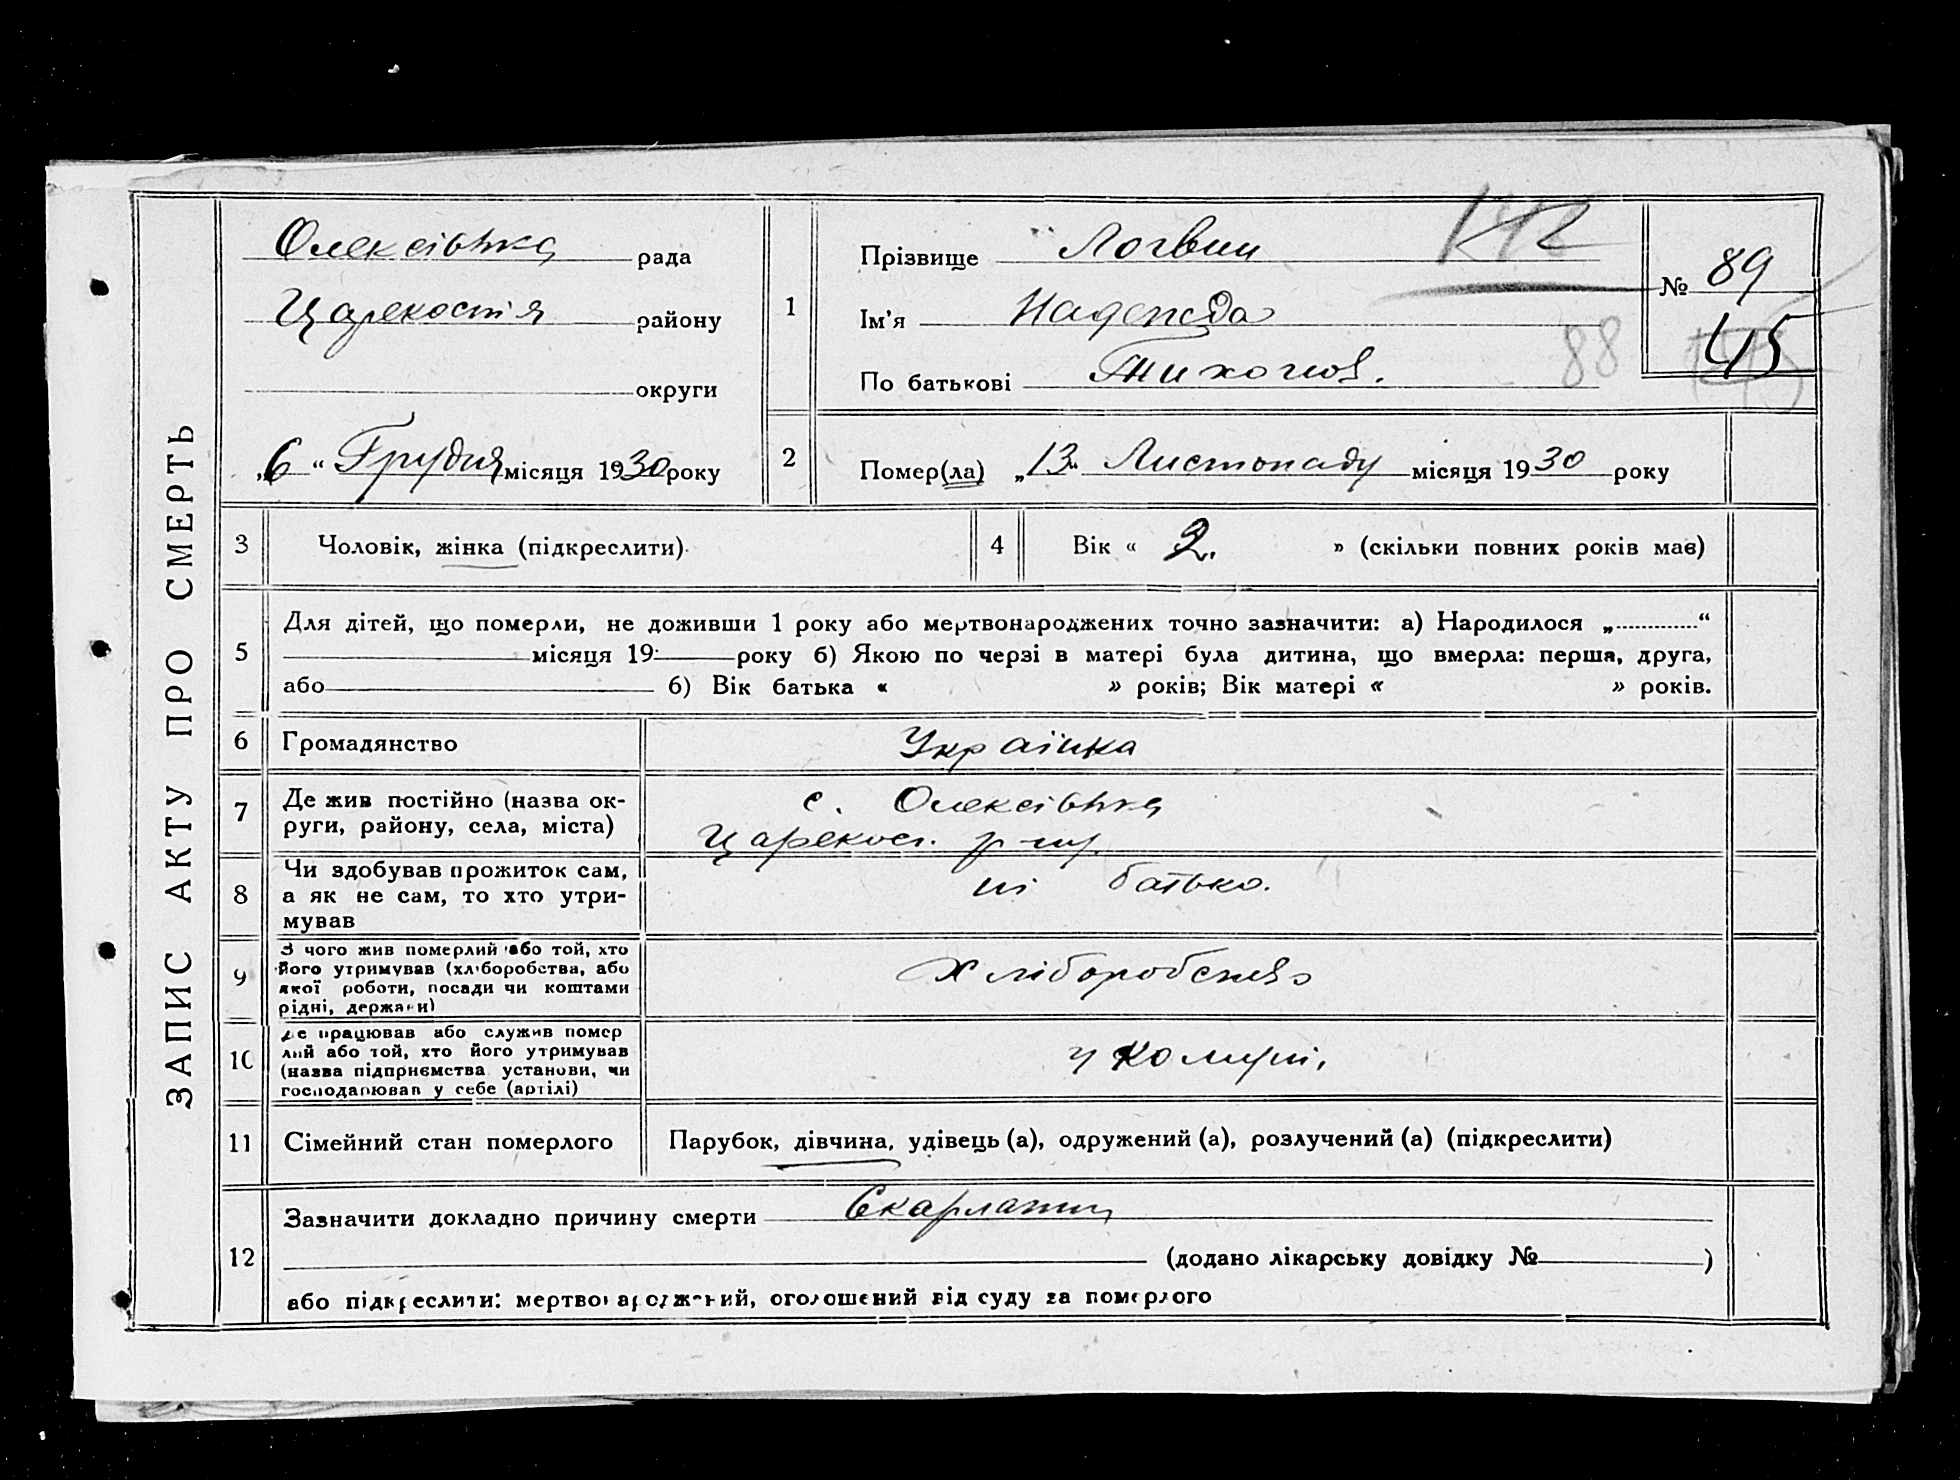 ЗАПИС АКТУ ПРО СМЕРТЬ
Олексіївка рада
району
округи
„6“ Грудня місяця 1930 року
1
Прізвище Логвин
Ім’я Надежда
По батькові Тихонов.
142
88
№ 89
45
2
Помер(ла) „13“ Листопаду місяця 1930 року
3
Чоловік, жінка (підкреслити)
4
Вік « 2. » (скільки повних років мав)
5
Для дітей, що померли, не доживши 1 року або мертвонароджених точно зазначити: а) Народилося „ “
місяця 19 року б) Якою по черзі в матері була дитина, що вмерла: перша, друга,
або б) Вік батька « » років; Вік матері « » років.
6
Громадянство
Українка
7
Де жив постійно (назва ок-
руги, району, села, міста)
с. Олексіївка
8
Чи здобував прожиток сам,
а як не сам, то хто утри-
мував
ні батько.
9
З чого жив померлий або той, хто
його утримував (хліборобства, або
якої роботи, посади чи коштами
рідні, держави)
Хліборобство
10
Де працював або служив помер
лий або той, хто його утримував
(назва підприємства установи, чи
господарював у себе (артілі)
у
11
Сімейний стан померлого
Парубок, дівчина, удівець (а), одружений (а), розлучений (а) (підкреслити)
12
Зазначити докладно причину смерти Скарлатина
(додано лікарську довідку № )
або підкреслити: мертвонароджений, оголошений від суду за померлого